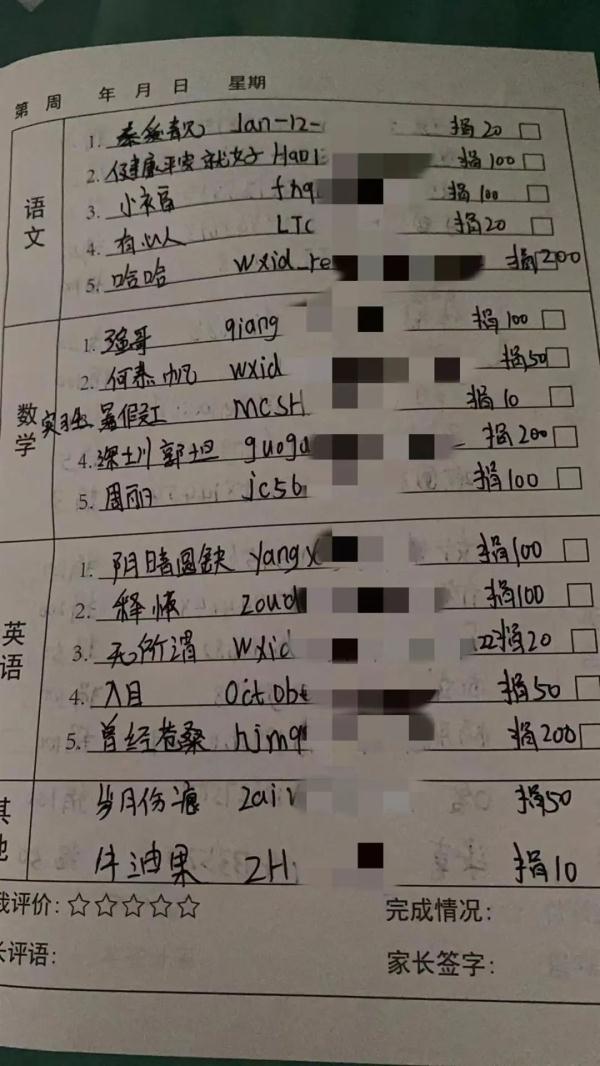 第 周 年 月 日 星期
语文
1. Jan-12- 捐20
2. 健康平安就好 HaoL 捐100
3. 小幸福 fhq 捐100
4. 有心人 LTC 捐20
5. 哈哈 wxid_re 捐200
数学
1. 强哥 qiang 捐100
2. 何泰帆 wxid 捐50
暑假工 MCSH 捐10
4. 深圳郭坦 guoga 捐200
5. 周丽 jc56 捐100
英语
1. 阴晴圆缺 yangx 捐100
2. 释怀 zoud 捐100
3. 无所谓 wxid 22捐20
4. 入目 Octobe 捐50
5. 曾经苍桑 hjmq 捐200
其他
岁月伤痕 zai 捐50
牛油果 ZH 捐10
我评价:☆☆☆☆☆ 完成情况:
长评语: 家长签字: